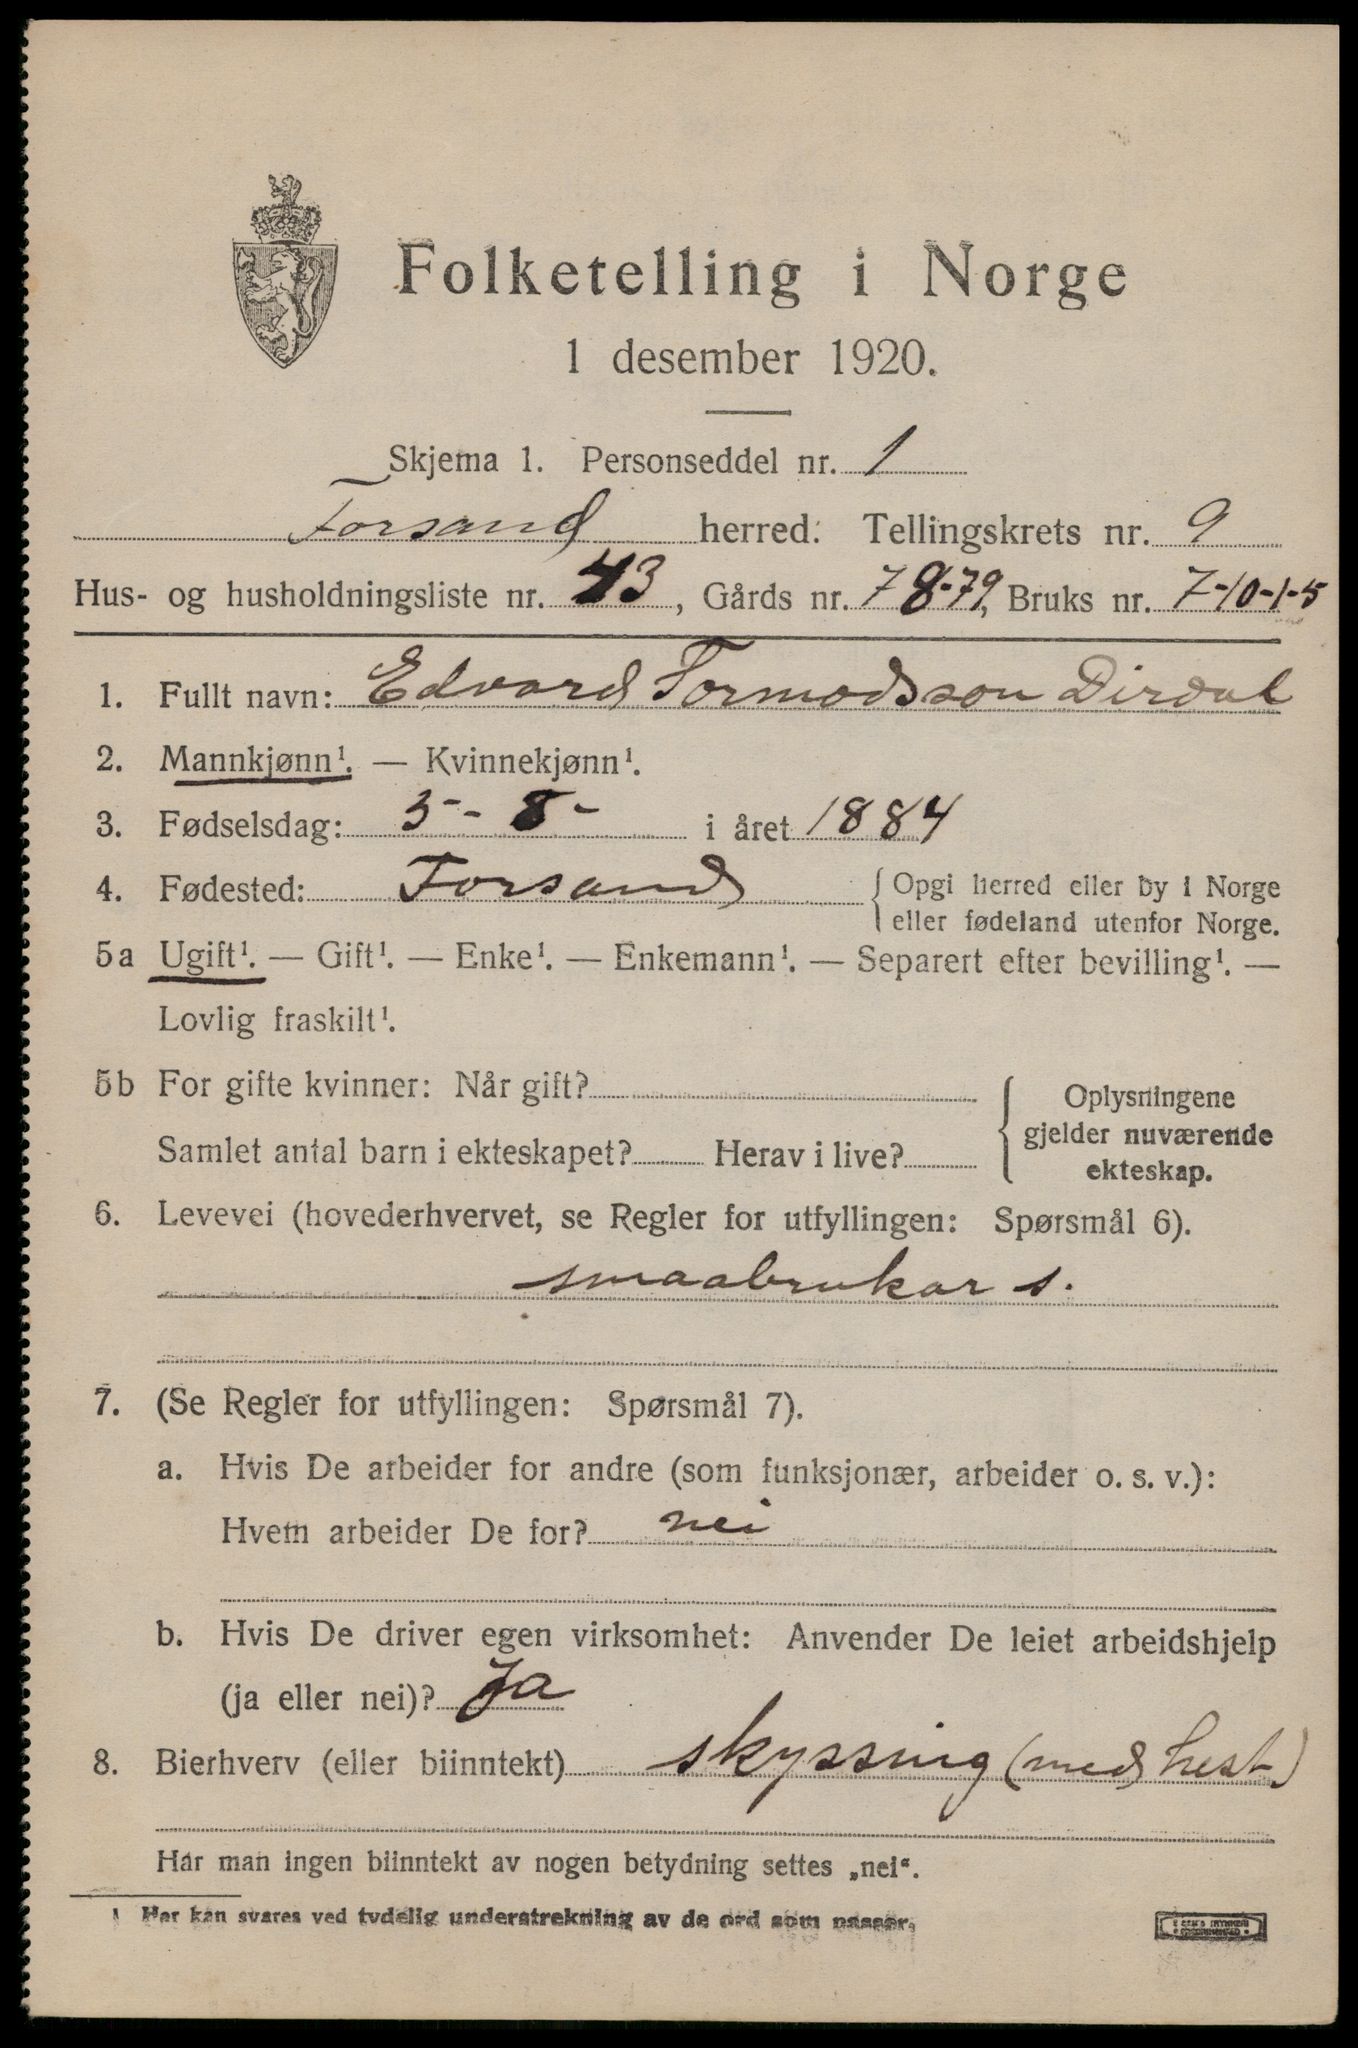 Folketelling i Norge
1 desember 1920.
Skjema 1. Personseddel nr. 1
Forsand herred. Tellingskrets nr. 9
Hus- og husholdningsliste nr. 43, Gårds nr. 78-79, Bruks nr. 7-10-1-5
1. Fullt navn: Edvard Tormodsson Dirdal
2. Mannkjønn¹. — Kvinnekjønn¹.
3. Fødselsdag: 5- 8- i året 1884
4. Fødested: Forsand { Opgi herred eller by i Norge
eller fødeland utenfor Norge.
5a Ugift¹. — Gift¹. — Enke¹. — Enkemann¹. — Separert efter bevilling¹. —
Lovlig fraskilt¹.
5b For gifte kvinner: Når gift?
Samlet antal barn i ekteskapet? Herav i live?
{ Oplysningene
gjelder nuværende
ekteskap.
6. Levevei (hovederhvervet, se Regler for utfyllingen: Spørsmål 6).
smaabrukar s.
7. (Se Regler for utfyllingen: Spørsmål 7).
a. Hvis De arbeider for andre (som funksjonær, arbeider o. s. v.):
Hvem arbeider De for? nei
b. Hvis De driver egen virksomhet: Anvender De leiet arbeidshjelp
(ja eller nei)? Ja
8. Bierhverv (eller biinntekt) skyssing (med hest)
Har man ingen biinntekt av nogen betydning settes „nei“.
¹ Her kan svares ved tydelig understrekning av de ord som passer.